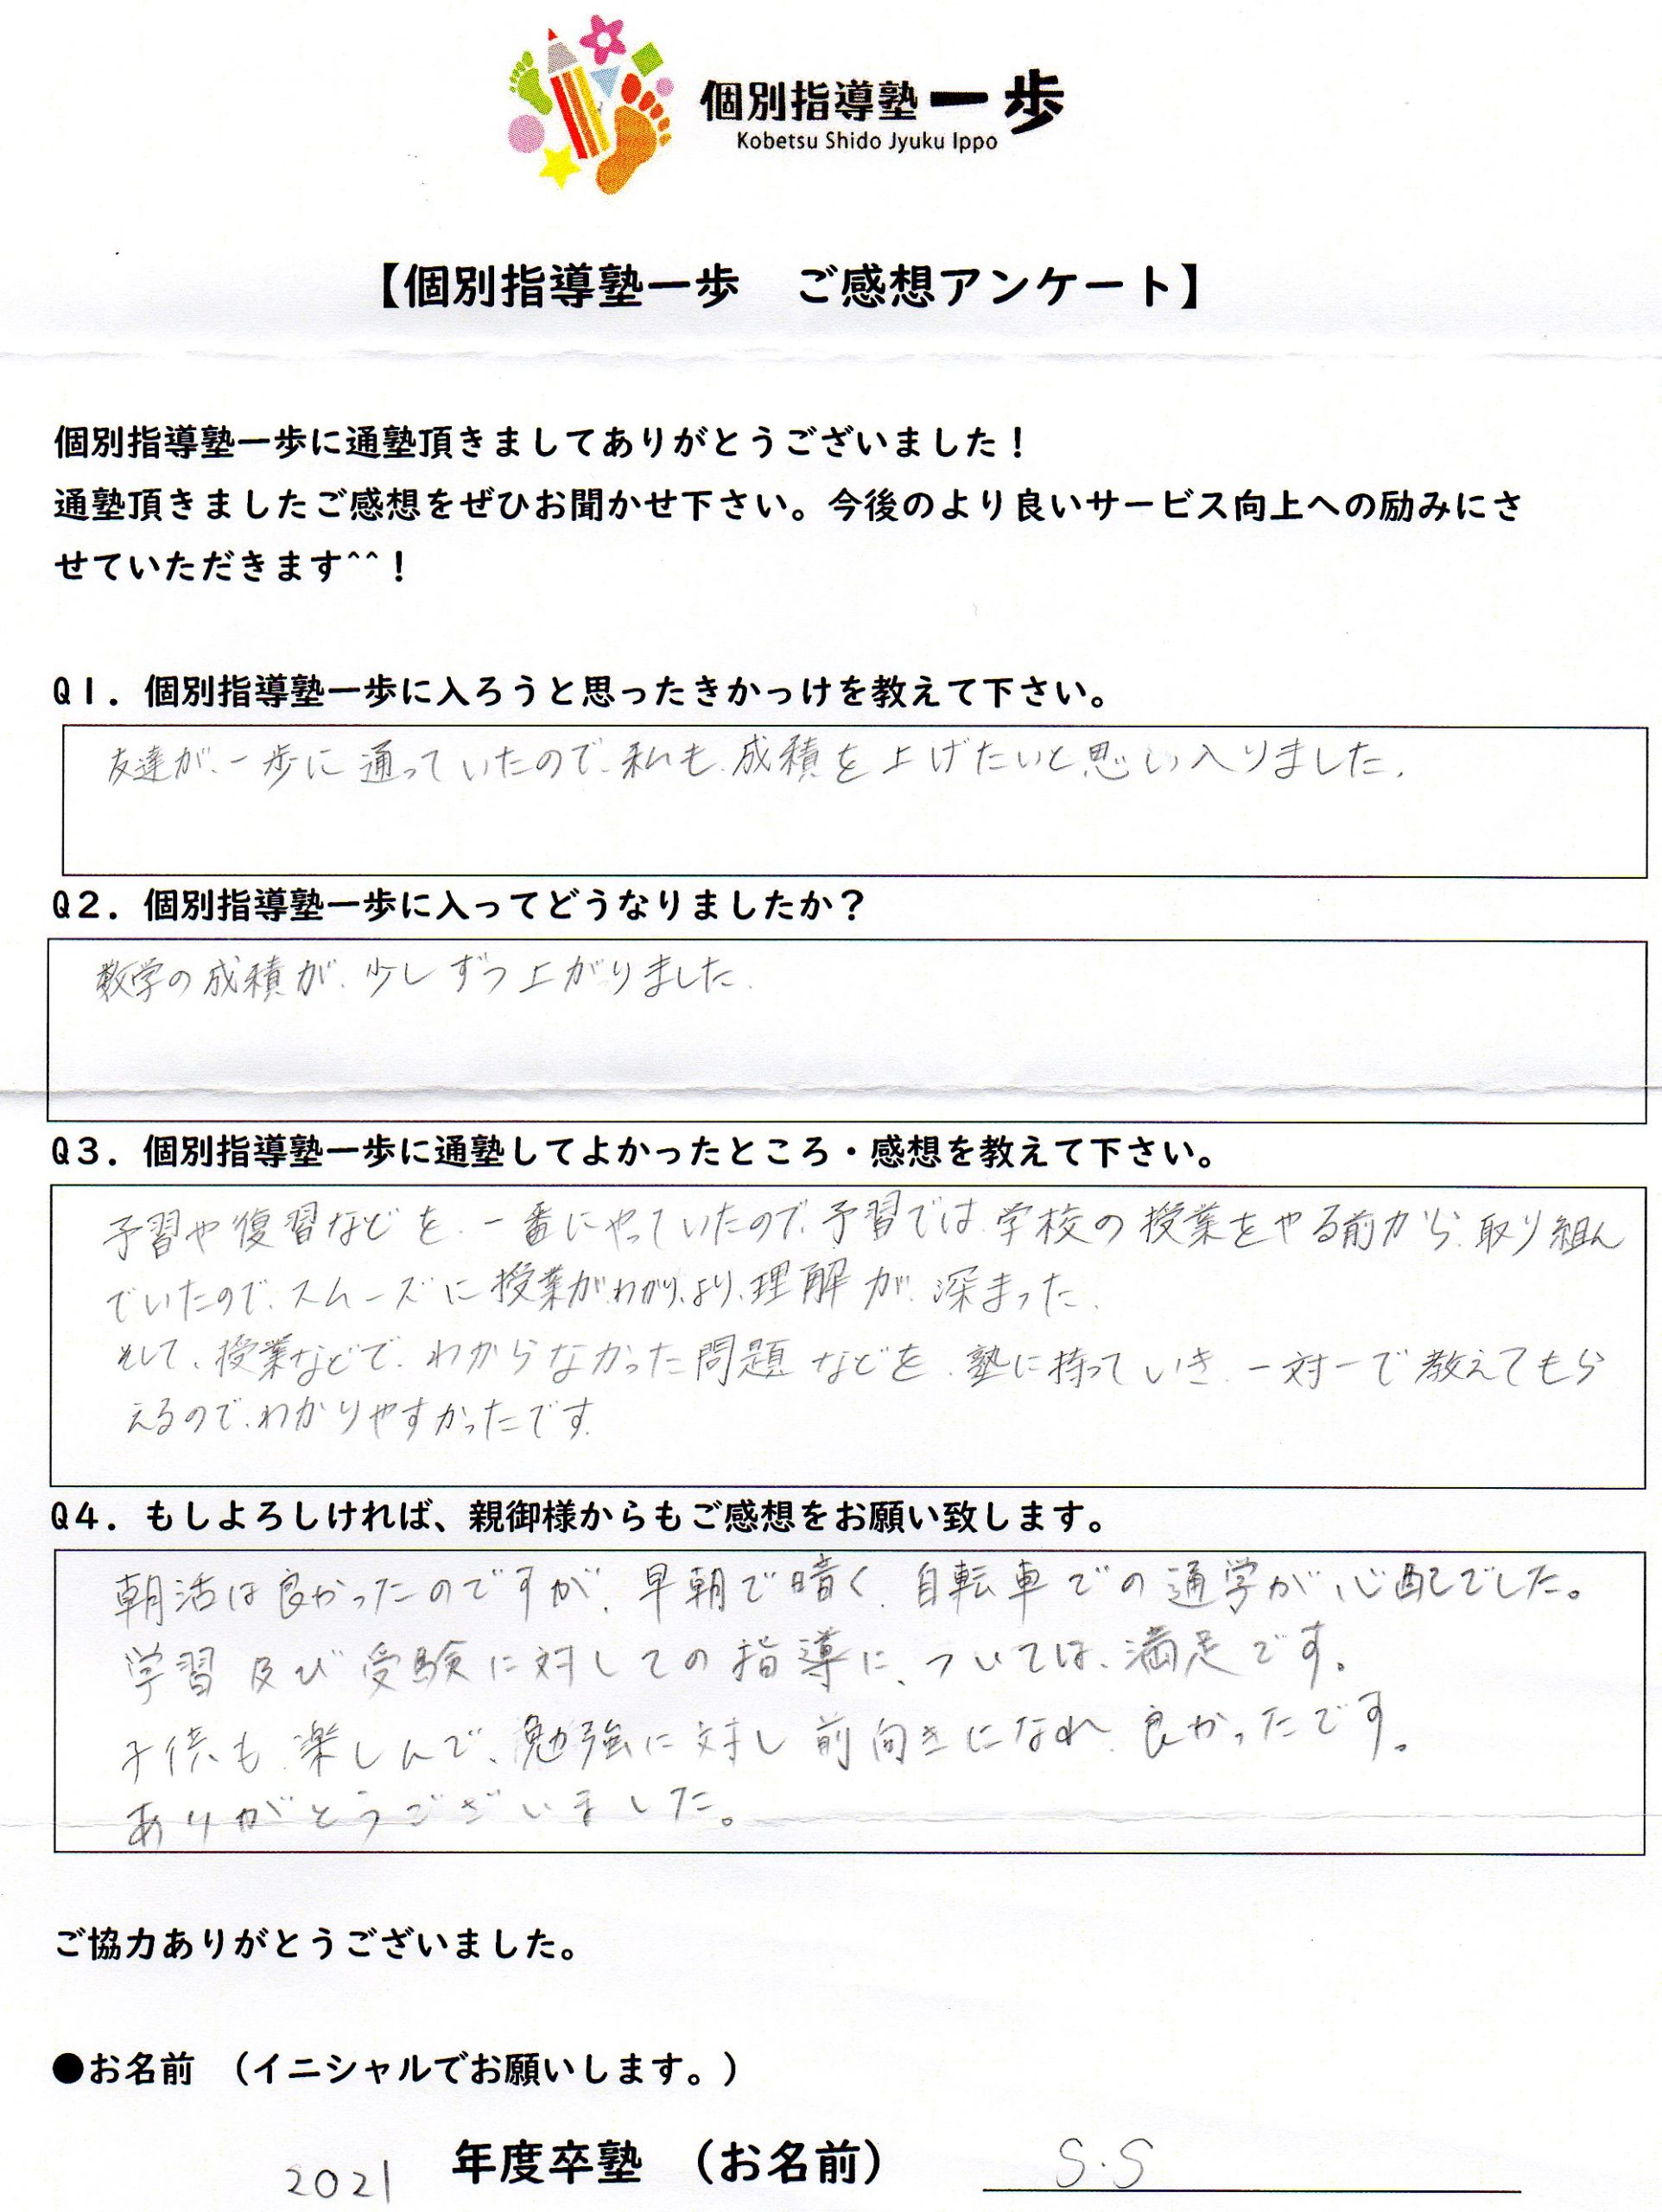 個別指導塾一歩
Kobetsu Shido Jyuku Ippo
【個別指導塾一歩　ご感想アンケート】
個別指導塾一歩に通塾頂きましてありがとうございました！
通塾頂きましたご感想をぜひお聞かせ下さい。今後のより良いサービス向上への励みにさ
せていただきます^^！
Q1．個別指導塾一歩に入ろうと思ったきかっけを教えて下さい。
友達が、一歩に通っていたので、私も、成積を上げたいと思い入りました。
Q2．個別指導塾一歩に入ってどうなりましたか？
数学の成積が、少しずつ上がりました。
Q3．個別指導塾一歩に通塾してよかったところ・感想を教えて下さい。
予習や復習などを、一番にやっていたので、予習では、学校の授業をやる前から、取り組ん
でいたので、スムーズに授業がわかり、より、理解が、深まった。
そして、授業などで、わからなかった問題などを、塾に持っていき、一対一で教えてもら
えるので、わかりやすかったです。
Q4．もしよろしければ、親御様からもご感想をお願い致します。
朝活は良かったのですが、早朝で暗く、自転車での通学が心配でした。
学習及び受験に対しての指導に、ついては、満足です。
子供も、楽しんで、勉強に対し前向きになれ、良かったです。
ありがとうございました。
ご協力ありがとうございました。
●お名前　（イニシャルでお願いします。）
2021　年度卒塾　（お名前）　S.S